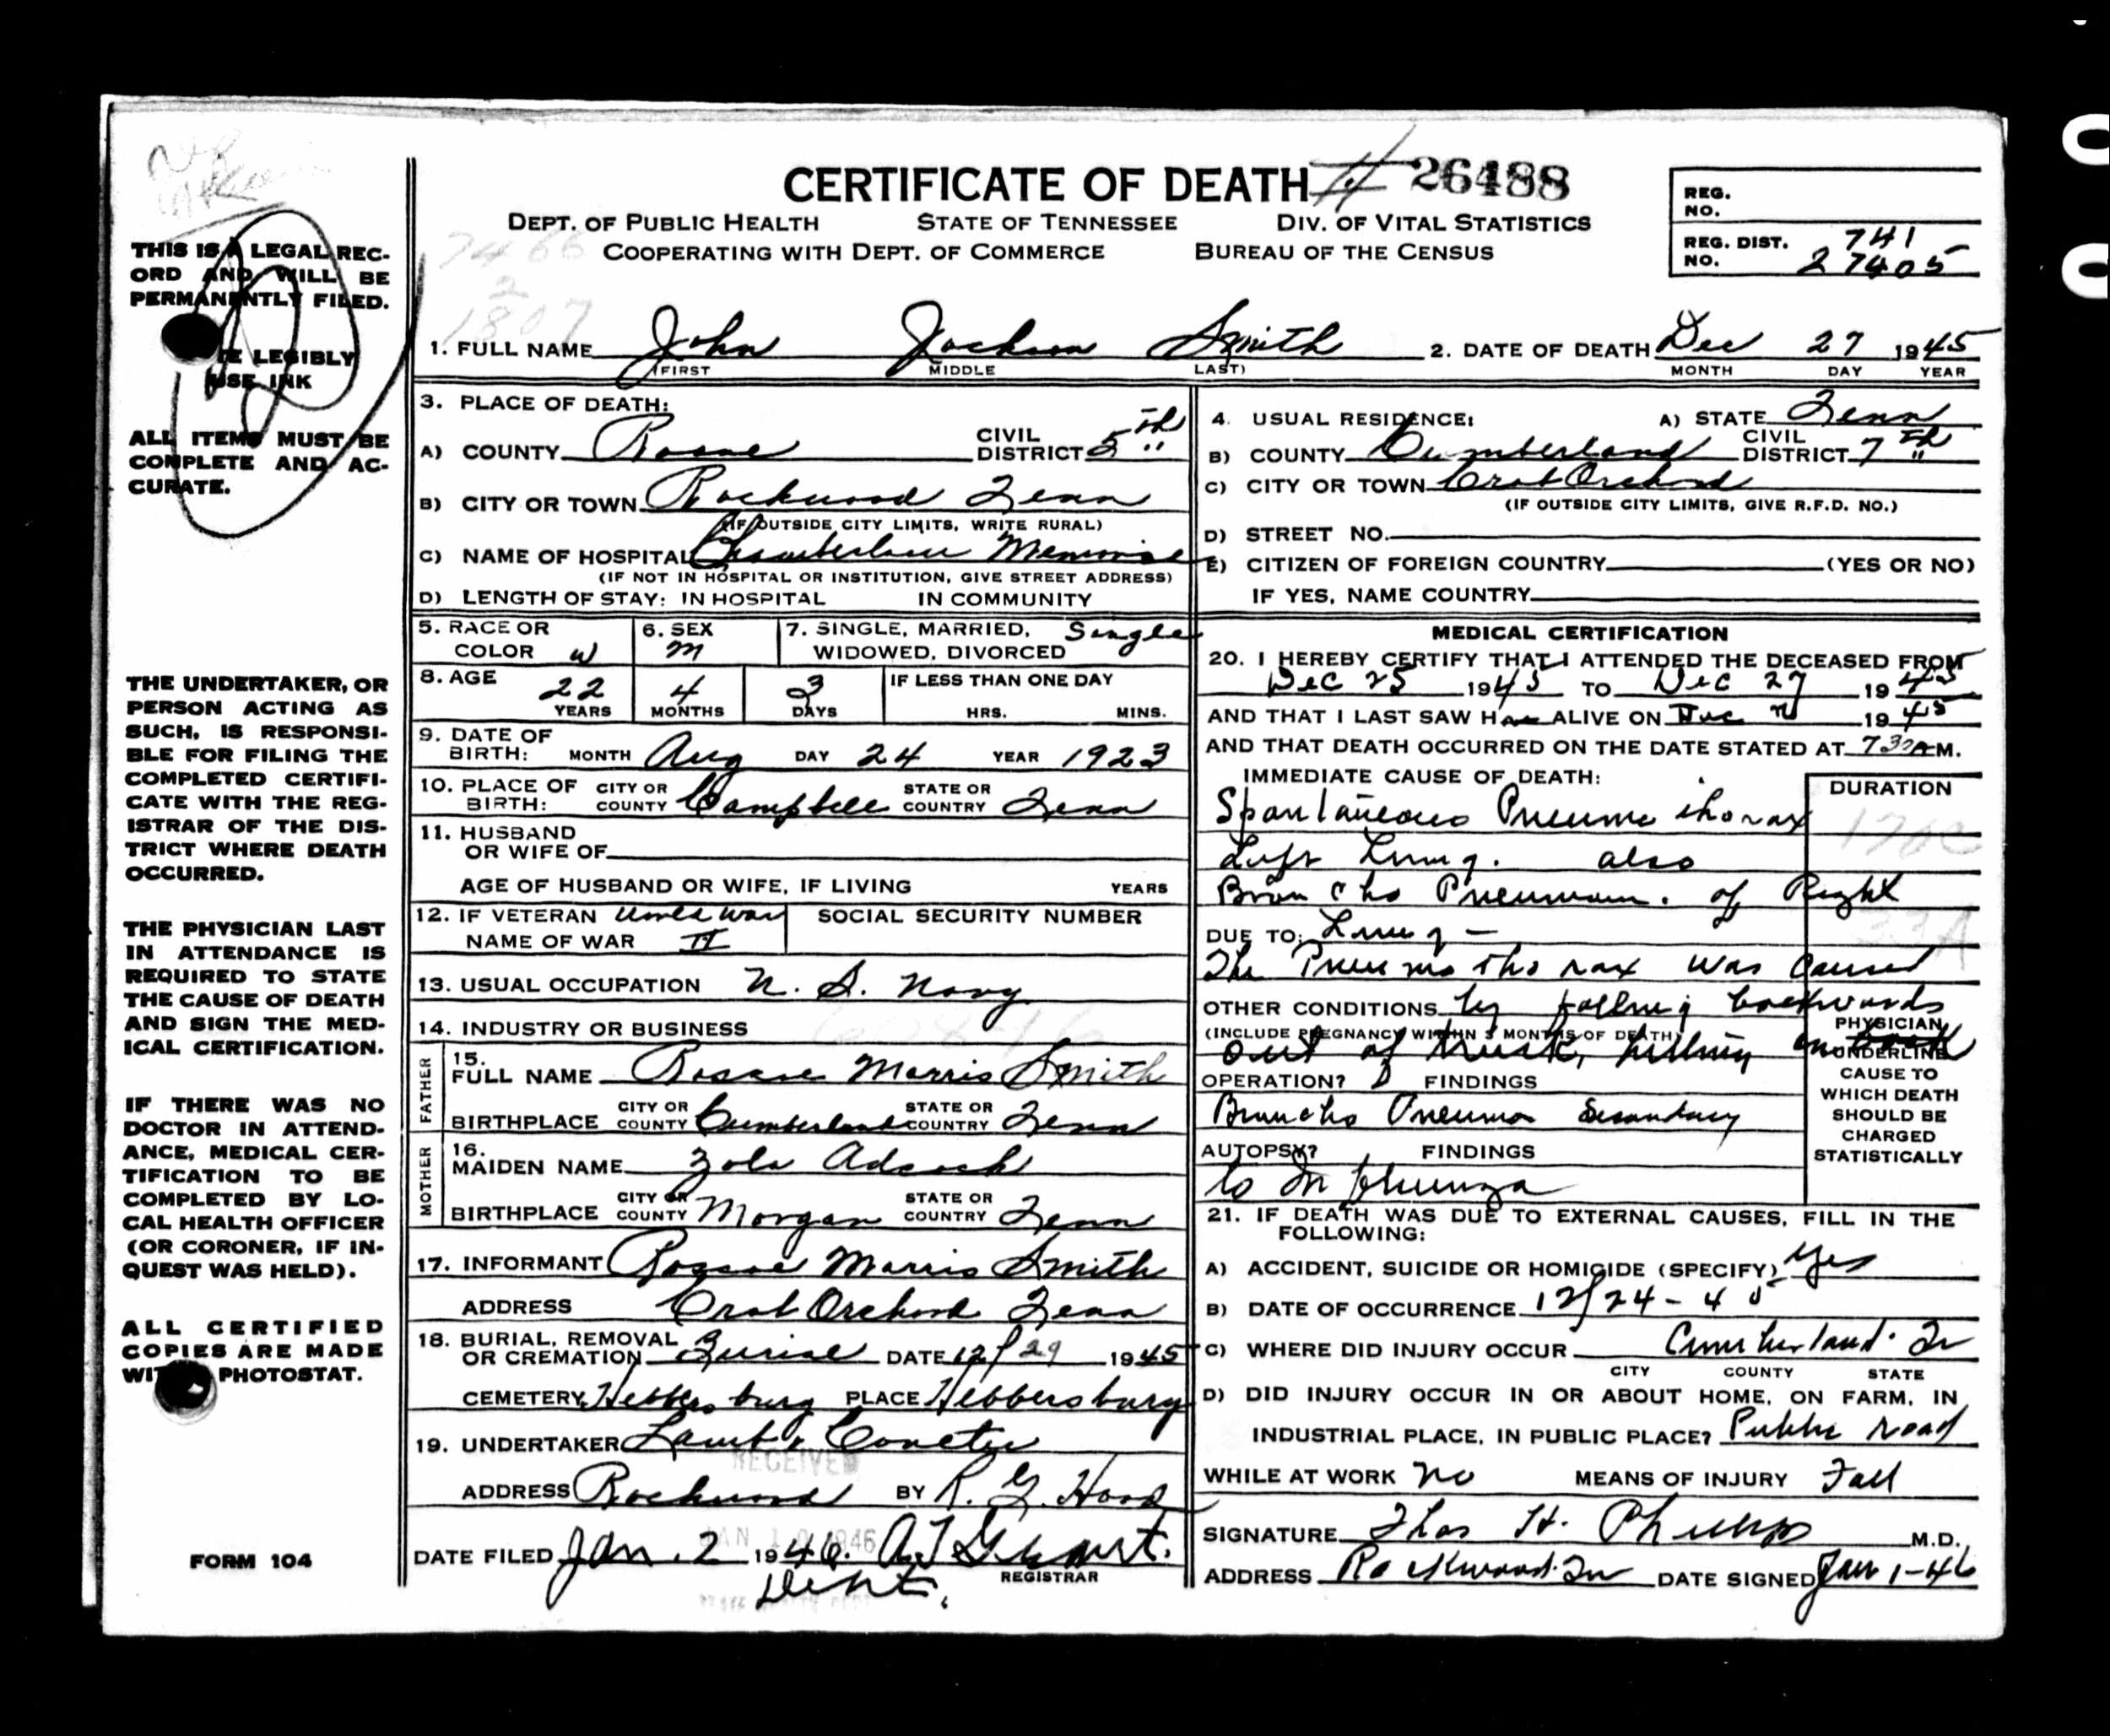 CERTIFICATE OF DEATH 26488
DEPT. OF PUBLIC HEALTH STATE OF TENNESSEE DIV. OF VITAL STATISTICS
COOPERATING WITH DEPT. OF COMMERCE BUREAU OF THE CENSUS
REG. NO.
REG. DIST. NO. 741
27405
THIS IS A LEGAL REC-
ORD AND WILL BE
PERMANENTLY FILED.
LEGIBLY
USE INK
ALL ITEMS MUST BE
COMPLETE AND AC-
CURATE.
THE UNDERTAKER, OR
PERSON ACTING AS
SUCH, IS RESPONSI-
BLE FOR FILING THE
COMPLETED CERTIFI-
CATE WITH THE REG-
ISTRAR OF THE DIS-
TRICT WHERE DEATH
OCCURRED.
THE PHYSICIAN LAST
IN ATTENDANCE IS
REQUIRED TO STATE
THE CAUSE OF DEATH
AND SIGN THE MED-
ICAL CERTIFICATION.
IF THERE WAS NO
DOCTOR IN ATTEND-
ANCE, MEDICAL CER-
TIFICATION TO BE
COMPLETED BY LO-
CAL HEALTH OFFICER
(OR CORONER, IF IN-
QUEST WAS HELD).
ALL CERTIFIED
COPIES ARE MADE
PHOTOSTAT.
FORM 104
1. FULL NAME John Jackson Smith 2. DATE OF DEATH Dec 27 1945
(FIRST MIDDLE LAST) MONTH DAY YEAR
3. PLACE OF DEATH:
A) COUNTY Roane CIVIL DISTRICT 5th
B) CITY OR TOWN Rockwood Tenn
(IF OUTSIDE CITY LIMITS, WRITE RURAL)
C) NAME OF HOSPITAL Chamberlain Memorial
(IF NOT IN HOSPITAL OR INSTITUTION, GIVE STREET ADDRESS)
D) LENGTH OF STAY: IN HOSPITAL IN COMMUNITY
4. USUAL RESIDENCE: A) STATE Tenn
B) COUNTY Cumberland CIVIL DISTRICT 7th
C) CITY OR TOWN Crab Orchard
(IF OUTSIDE CITY LIMITS, GIVE R.F.D. NO.)
D) STREET NO.
E) CITIZEN OF FOREIGN COUNTRY (YES OR NO)
IF YES, NAME COUNTRY
5. RACE OR COLOR W 6. SEX M 7. SINGLE, MARRIED, WIDOWED, DIVORCED Single
8. AGE 22 YEARS 4 MONTHS 3 DAYS IF LESS THAN ONE DAY HRS. MINS.
9. DATE OF BIRTH: MONTH Aug DAY 24 YEAR 1923
10. PLACE OF BIRTH: CITY OR COUNTY Campbell STATE OR COUNTRY Tenn
11. HUSBAND OR WIFE OF
AGE OF HUSBAND OR WIFE, IF LIVING YEARS
12. IF VETERAN NAME OF WAR World War II SOCIAL SECURITY NUMBER
13. USUAL OCCUPATION U. S. Navy
14. INDUSTRY OR BUSINESS
FATHER
15. FULL NAME Roscoe Morris Smith
BIRTHPLACE CITY OR COUNTY Cumberland STATE OR COUNTRY Tenn
MOTHER
16. MAIDEN NAME Zola Adcock
BIRTHPLACE CITY OR COUNTY Morgan STATE OR COUNTRY Tenn
17. INFORMANT Roscoe Morris Smith
ADDRESS Crab Orchard Tenn
18. BURIAL, REMOVAL OR CREMATION Burial DATE 12/29 1945
CEMETERY Hebbersburg PLACE Hebbersburg
19. UNDERTAKER Lamb &
RECEIVED
ADDRESS Rockwood BY R. G. Hood
DATE FILED Jan. 2 1946.
REGISTRAR
MEDICAL CERTIFICATION
20. I HEREBY CERTIFY THAT I ATTENDED THE DECEASED FROM
Dec 25 1945 TO Dec 27 1945
AND THAT I LAST SAW H ALIVE ON Dec 1945
AND THAT DEATH OCCURRED ON THE DATE STATED AT 730 A M.
IMMEDIATE CAUSE OF DEATH: DURATION
Spontaneous Pneumothorax
Left Lung. also
Broncho Pneumonia. of Right
DUE TO: Lung —
The Pneumothorax was caused
OTHER CONDITIONS by falling backwards
(INCLUDE PREGNANCY WITHIN 3 MONTHS OF DEATH)
out of truck, hitting on back
PHYSICIAN
UNDERLINE
CAUSE TO
WHICH DEATH
SHOULD BE
CHARGED
STATISTICALLY
OPERATION? FINDINGS
Broncho Pneumonia Secondary
AUTOPSY? FINDINGS
to Influenza
21. IF DEATH WAS DUE TO EXTERNAL CAUSES, FILL IN THE
FOLLOWING:
A) ACCIDENT, SUICIDE OR HOMICIDE (SPECIFY) Yes
B) DATE OF OCCURRENCE 12/24-45
C) WHERE DID INJURY OCCUR Cumberland. Tn
CITY COUNTY STATE
D) DID INJURY OCCUR IN OR ABOUT HOME, ON FARM, IN
INDUSTRIAL PLACE, IN PUBLIC PLACE? Public road
WHILE AT WORK no MEANS OF INJURY Fall
SIGNATURE Thos H. Phillips M.D.
ADDRESS Rockwood. Tn DATE SIGNED Jan 1-46